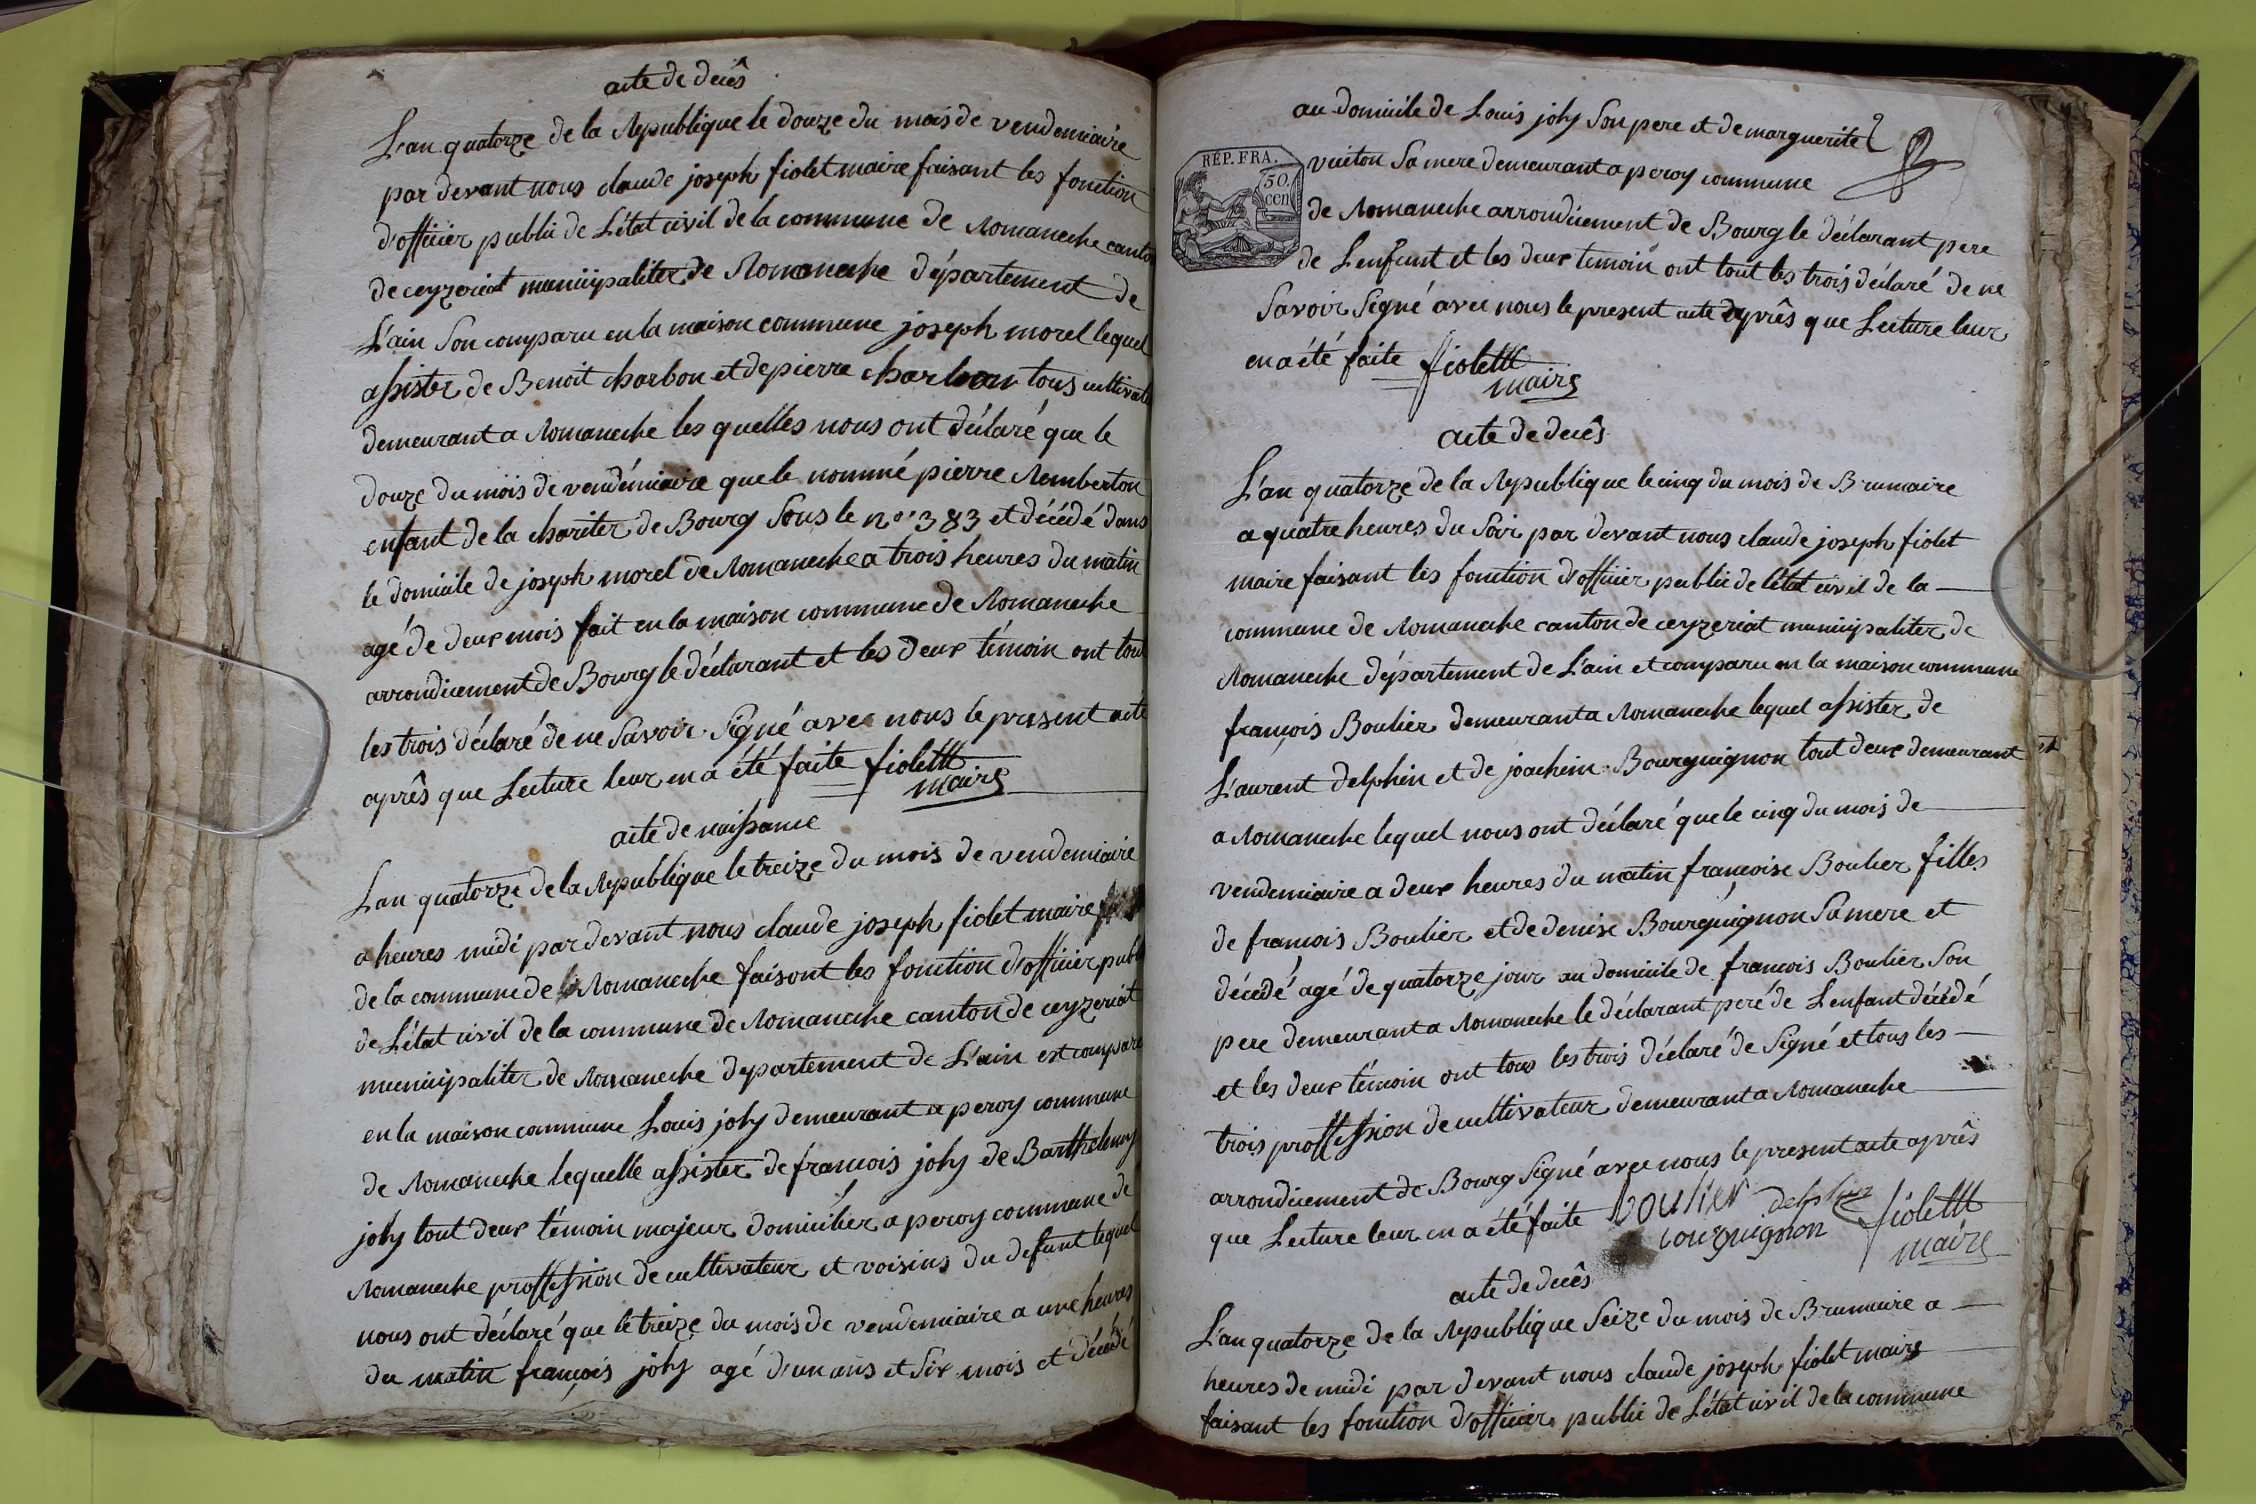 acte de decês
L'an quatorze de la Republique le douze du mois de vendemiaire
par devant nous claude joseph fiolet maire faisant les fonction
d'officier public de L'état civil de la commune de Romaneche canto
de ceyzeriat municipaliter de Romaneche département de
L'ain Son comparu en la maison commune joseph morel lequel
assister de Benoit charbon et de pierre charbon tous cultivat
demeurant a Romaneche les quelles nous ont déclaré que le
douze du mois de vendémiaire que le nommé pierre Remberton
enfant de la chariter de Bourg Sous le n° 383 et décédé dans
le domicile de joseph morel de Romaneche a trois heures du matin
agé de deux mois fait en la maison commune de Romaneche
arrondicement de Bourg le déclarant et les deux témoin ont tout
les trois déclaré de ne Savoir Signé avec nous le present acte
après que Lecture leur en a été faite fiolett
maire
acte de naissance
L'an quatorze de la Republique le treize du mois de vendemiaire
a heures midi par devant nous claude joseph fiolet maire
de la commune de Romaneche faisont les fonction d'officier publi
de L'état civil de la commune de Romaneche canton de ceyzeriat
municipaliter de Romaneche departement de L'ain est compare
en la maison commune Louis joly demeurant a peroy commune
de Romaneche lequelle assister de francois joly de Barthelemy
joly tout deux témoin majeur domicilier a peroy commune de
Romaneche proffession de cultivateur et voisins du defunt lequel
nous ont déclaré que le treize du mois de vendemiaire a une heures
du matin françois joly agé d'un ans et Six mois et décédé
au domicile de Louis joly Son pere et de marguerite
RÉP. FRA.
50.
cen
vuiton Sa mere demeurant a peroy commune
de Romaneche arrondicement de Bourg le déclarant pere
de Lenfant et les deux temoin ont tout les trois déclaré de ne
Savoir Signé avec nous le present acte après que Lecture leur
en a été faite fiolett
maire
acte de decês
L'an quatorze de la Republique le cinq du mois de Brumaire
a quatre heures du Soir par devant nous claude joseph fiolet
maire faisant les fonction d'officier public de l'état civil de la
commune de Romaneche canton de ceyzeriat municipaliter de
Romaneche département de L'ain et comparu en la maison commune
françois Boulier demeurant a Romaneche lequel assister de
L'aurent delphin et de joachim Bourguignon tout deux demeurant
a Romaneche lequel nous ont déclaré que le cinq du mois de
vendemiaire a deux heures du matin françoise Boulier filles
de francois Boulier et de denise Bourguignon Sa mere et
décédé agé de quatorze jour au domicile de francois Boulier Son
pere demeurant a Romaneche le déclarant peré de Lenfant décédé
et les deux témoin ont tous les trois déclaré de Signé et tous les
trois proffession de cultivateur demeurant a Romaneche
arrondicement de Bourg Signé avec nous le present acte après
que Lecture leur en a été faite boulier delphin fiolett
bourguignon maire
acte de decês
L'an quatorze de la Republique Seize du mois de Brumaire a
heures de midi par devant nous claude joseph fiolet maire
faisant les fonction d'officier public de L'état civil de la commune